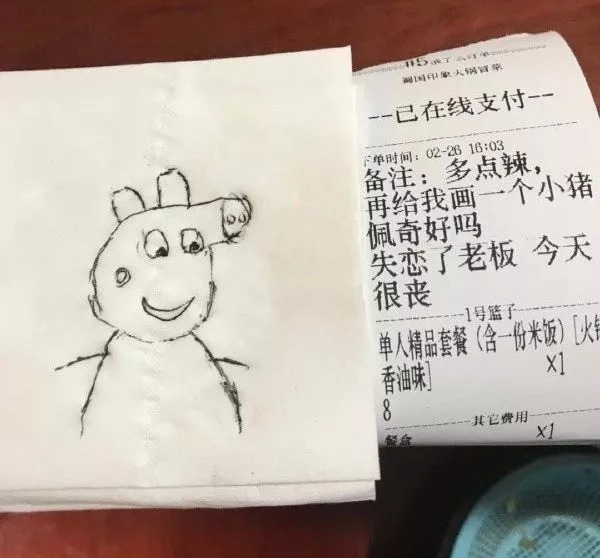 #5
阆国印象火锅冒菜
--已在线支付--
下单时间: 02-26 16:03
备注: 多点辣,
再给我画一个小猪
佩奇好吗
失恋了老板 今天
很丧
1号篮子
单人精品套餐(含一份米饭)[火锅
香油味] x1
8
其它费用
餐盒 x1